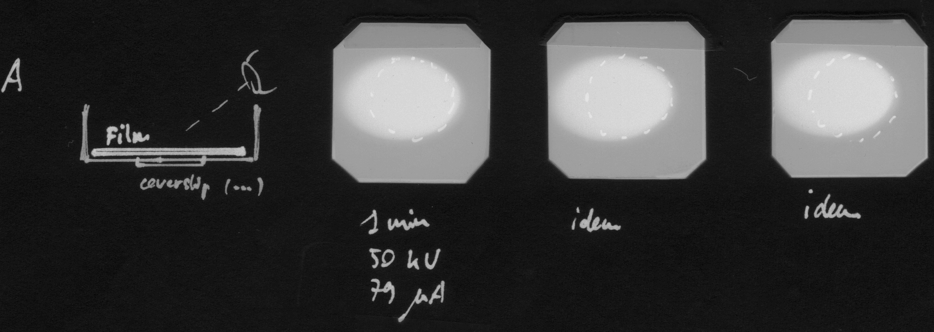 A
Film
coverslip (...)
1 min
50 kV
79 μA
idem
idem